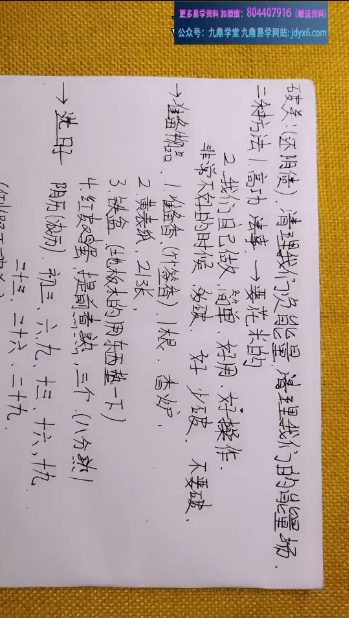 更多易学资料 加微信：804407916（赠送资料）
公众号：九鼎学堂 九鼎易学网站：jdyx6.com
破关（还阴债）．清理我们负能量．清理我们的能量场．
二种方法 1 高功 法事． → 要花米的
2 我们自己做． 简单 好用． 好操作．
非常不利的时候 多破． 好 少破． 不要破．
→ 准备物品． 1 准备香．（竹签香）．1根． 香炉．
2 黄表纸．21张．
3. 铁盆（地板求的用东西垫一下）
4. 红皮鸡蛋． 提前煮熟． 三个．（八分熟）
→ 选日子
阴历（农历） 初三、六、九、十三、十六、十九
二十三、二十六、二十九．